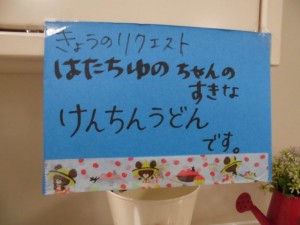 きょうのリクエスト
はたちゆの ちゃんの
すきな
けんちんうどん
です。